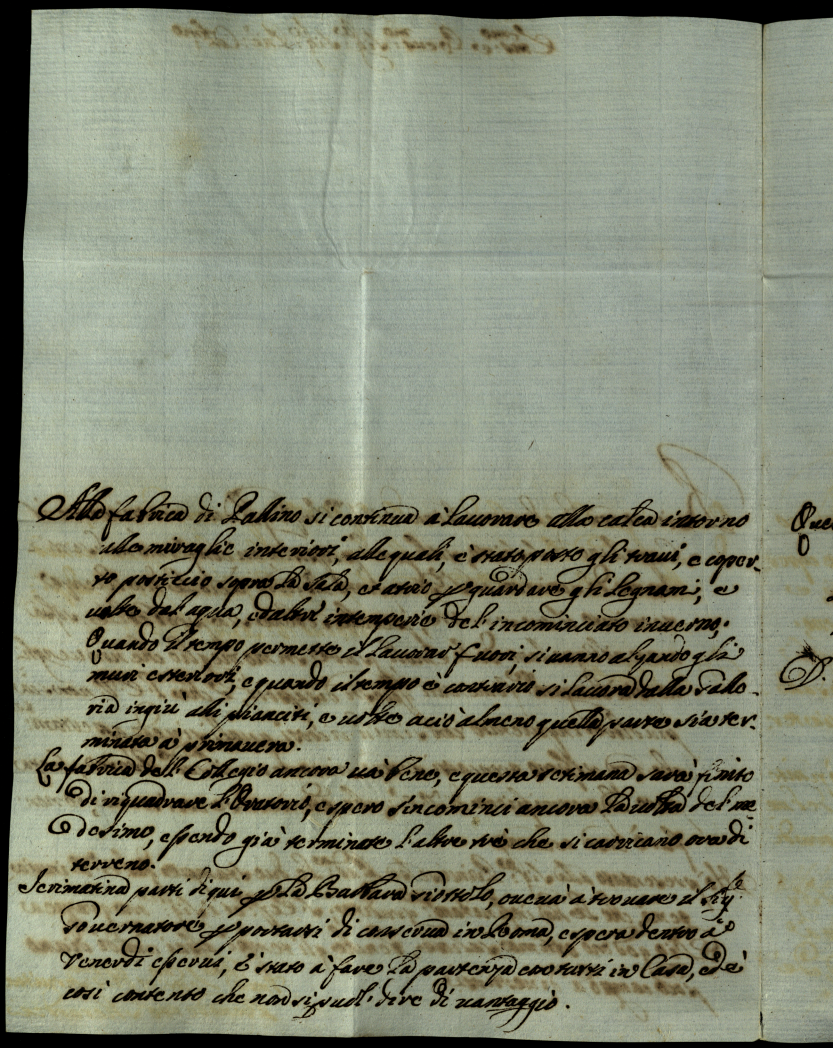 Alla fabrica di Pallino si continua à lavorare alla calca intorno
alle miraglie interiori, alle quali, è stato posto gli travi, e coper-
to posticcio sopra la Sala, et atrio p guardare gli legnami, e
volte dal aqua, ed altri intemperie del'incominciato inverno,
Quando il tempo permette il lavorar' fuori, si vanno alzando gli
muri esteriori, e quando il tempo è contrario si lavora dalla Galle-
ria ingiù alli pianciti, e volte aciò almeno quella parte sia ter-
minata à primavera.
La fabrica del Collegio ancora và bene, e questa setimana sarà finito
di riquadrare l'Oratorio, e spero s'incominci ancora la volta del me-
desimo, essendo già terminate l'altre trè che si carricano ora di
terreno.
Jerimatina partì di qui p la, ove và à trovare il Sig.
Governatore p portarsi di conserva in Roma, e spera dentro à
Venerdi esservi, È stato à fare la partenza con tutti in Casa, ed è
così contento che non si puol' dire di vantaggio.